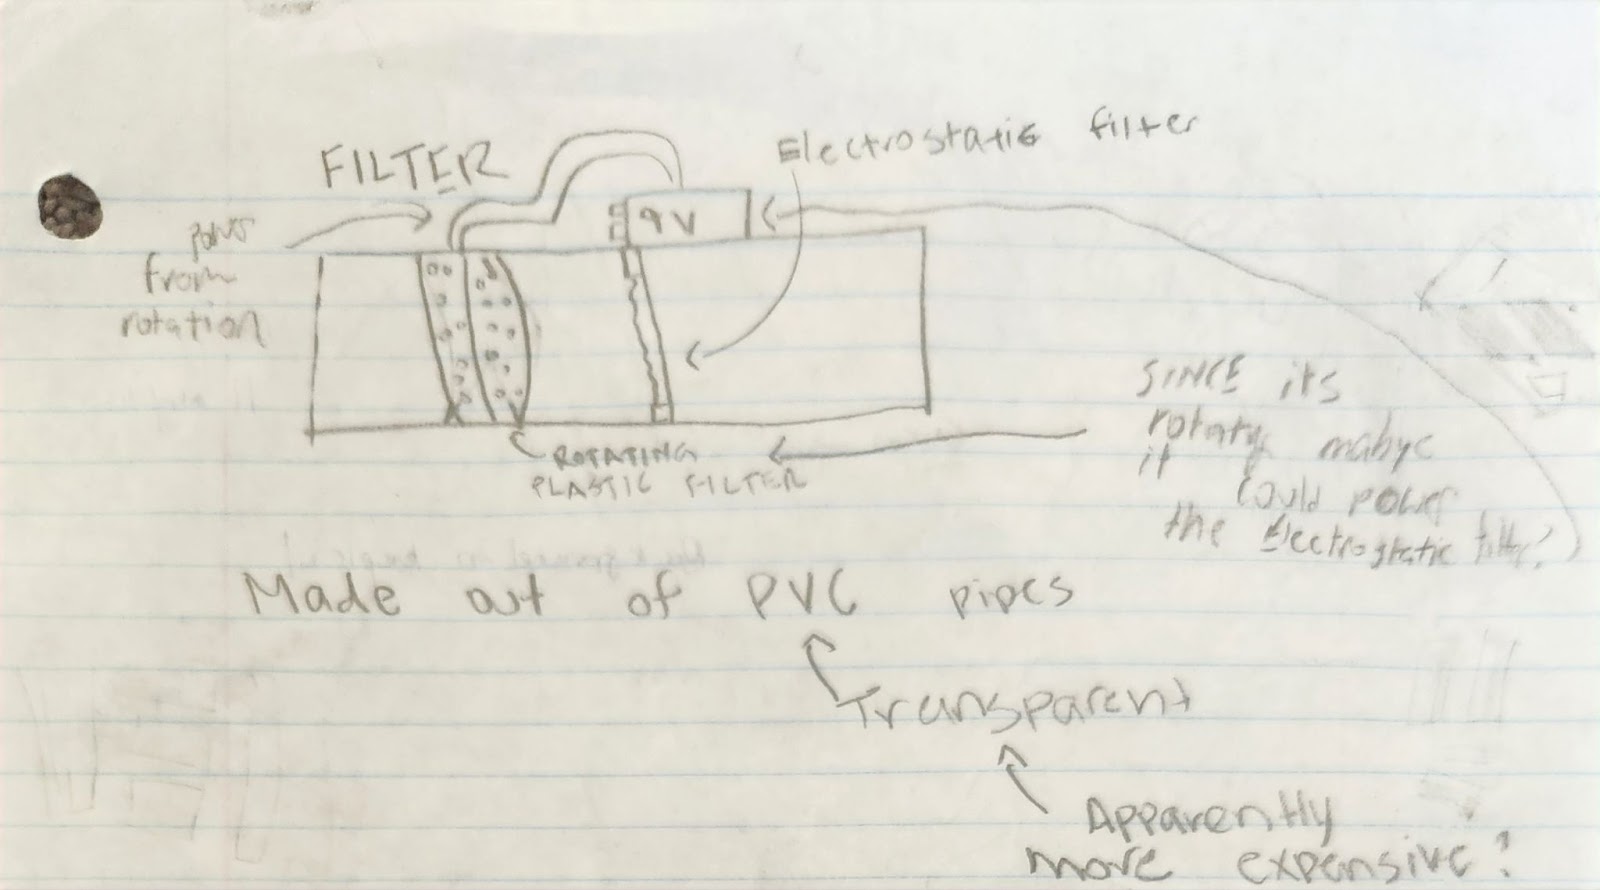 Electrostatic filter
FILTER
9V
from
rotation
ROTATING
PLASTIC FILTER
SINCE its
rotary mabye
it
could power
the Electrostatic filter?
Made out of PVC pipes
Transparent
Apparently
more expensive?